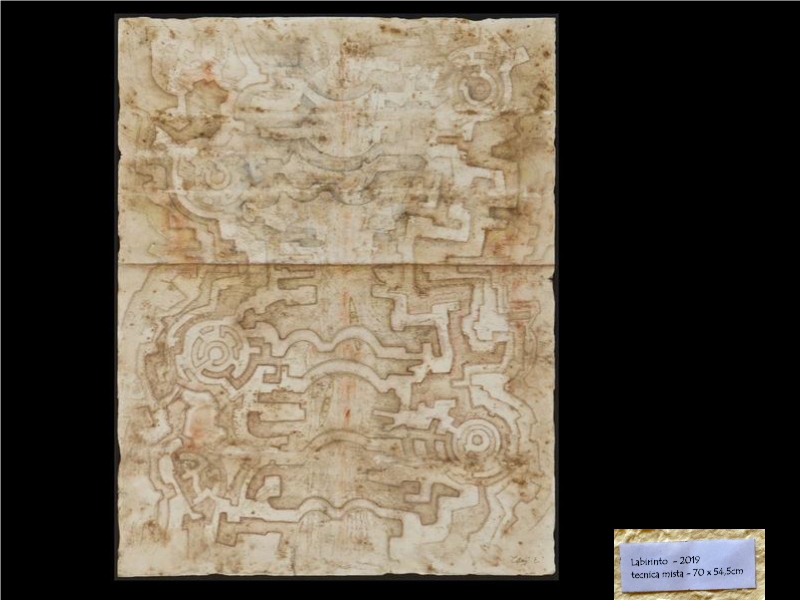 Labirinto - 2019
tecnica mista - 70 x 54,5cm